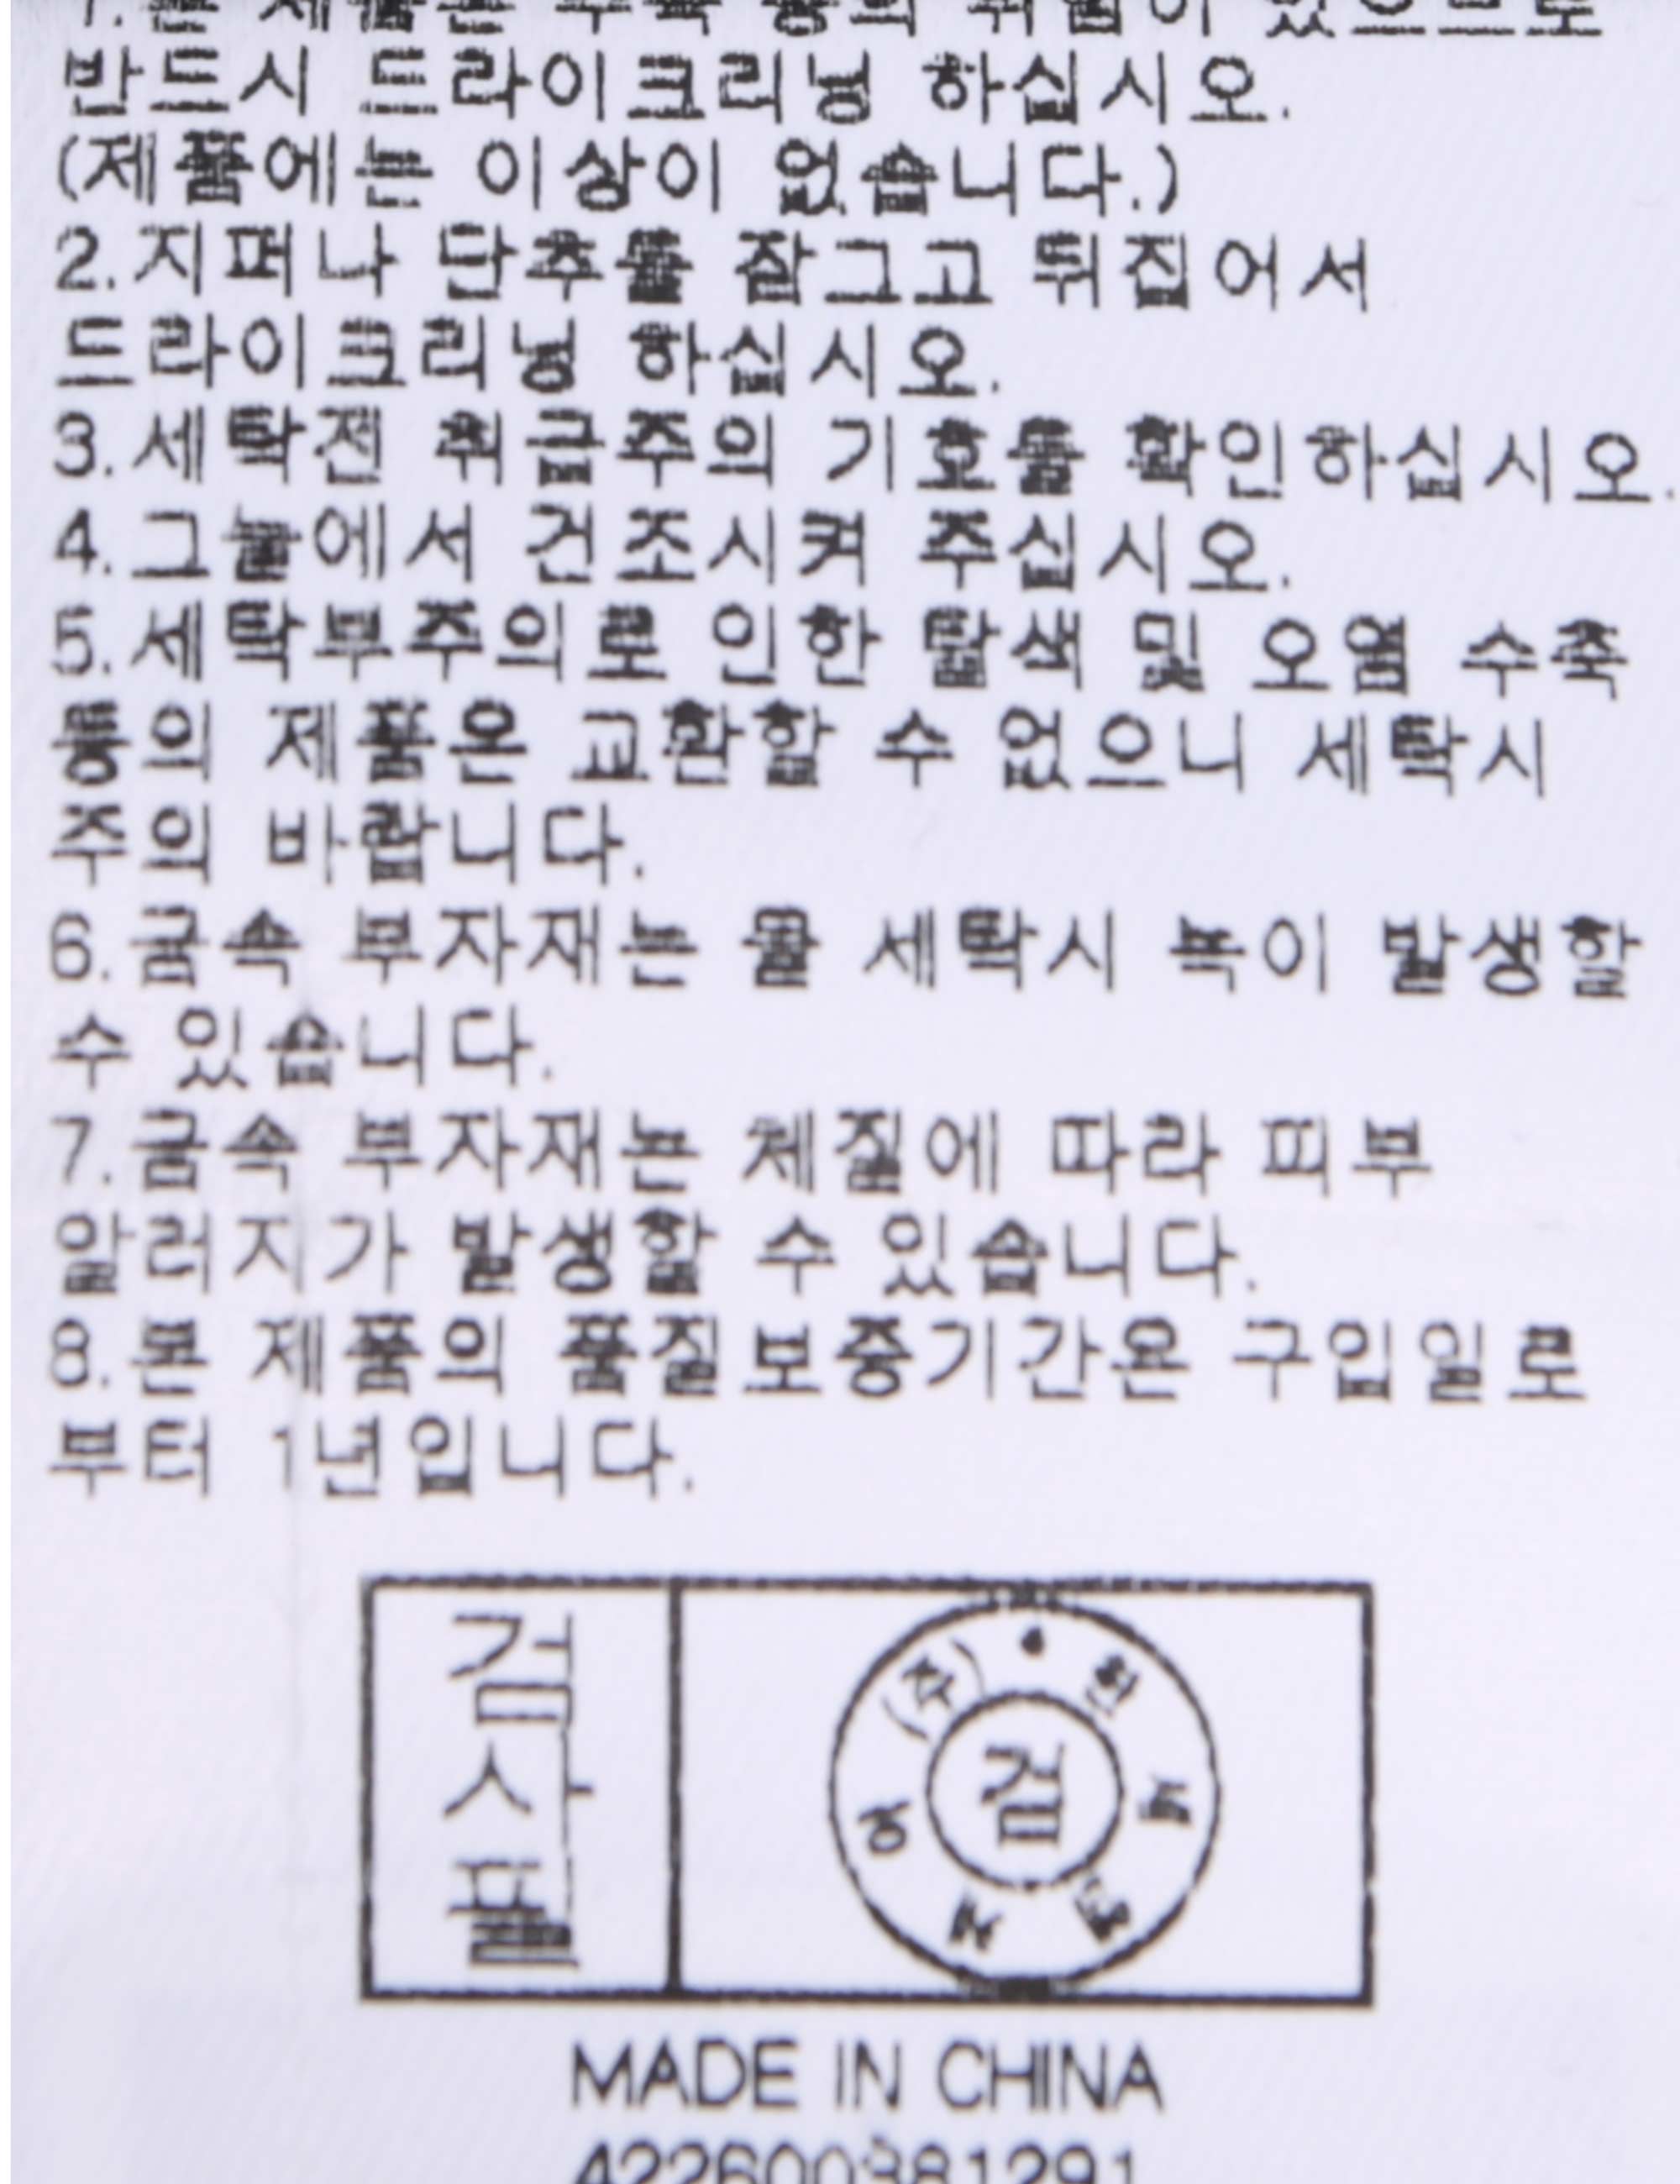 1.본 제품은 수축 등의 위험이 있으므로
반드시 드라이크리닝 하십시오.
(제품에는 이상이 없습니다.)
2.지퍼나 단추를 잠그고 뒤집어서
드라이크리닝 하십시오.
3.세탁전 취급주의 기호를 확인하십시오.
4.그늘에서 건조시켜 주십시오.
5.세탁부주의로 인한 탈색 및 오염 수축
등의 제품은 교환할 수 없으니 세탁시
주의 바랍니다.
6.금속 부자재는 물 세탁시 녹이 발생할
수 있습니다.
7.금속 부자재는 체질에 따라 피부
알러지가 발생할 수 있습니다.
8.본 제품의 품질보증기간은 구입일로
부터 1년입니다.
검사필
(주)
검
MADE IN CHINA
422600381291